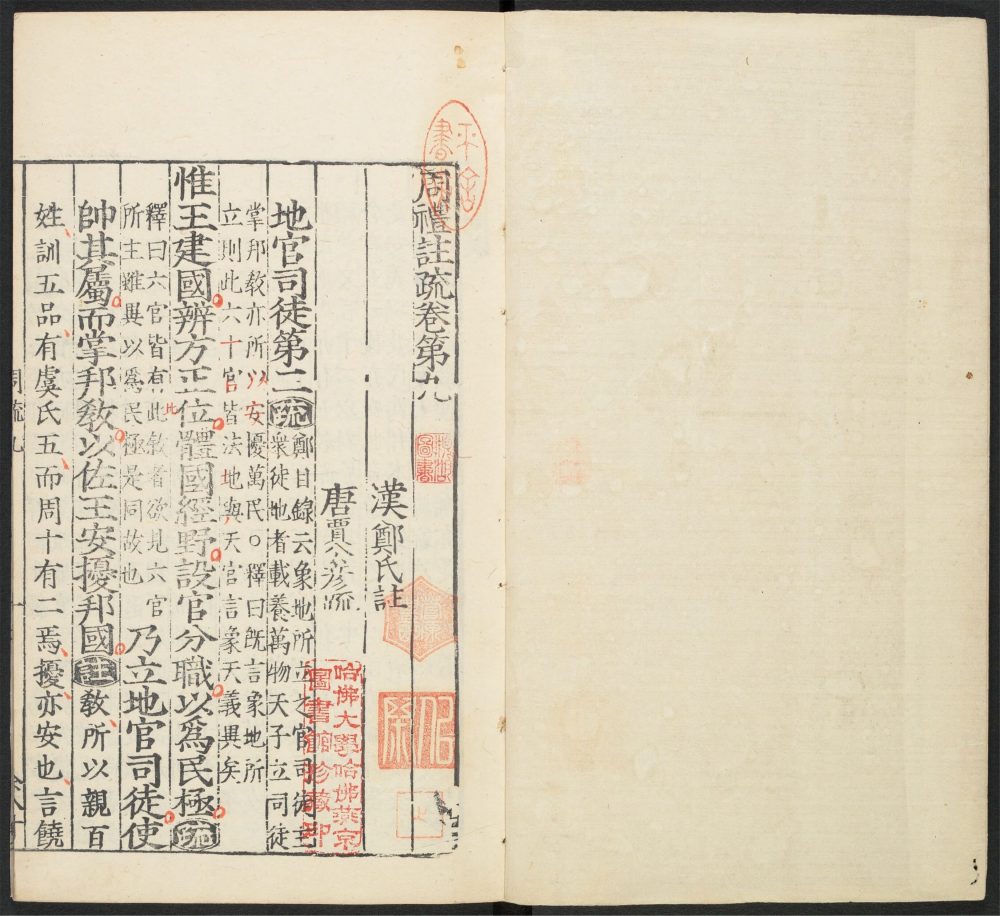 周禮註疏卷第九
漢鄭氏註
唐賈公彥疏
地官司徒第二疏鄭目錄云象地所立之官司徒主
衆徒地者載養萬物天子立司徒
掌邦敎亦所以安擾萬民○釋曰旣言象地所
立則此六十官皆法地與天官言象天義異矣
惟王建國辨方正位體國經野設官分職以爲民極疏
釋曰六官皆有此敘者欲見六官
所主雖異以爲民極是同故也
乃立地官司徒使
帥其屬而掌邦敎以佐王安擾邦國註敎所以親百
姓訓五品有虞氏五而周十有二焉擾亦安也言饒
周疏九
哈佛大學哈佛燕京
圖書館珍藏印